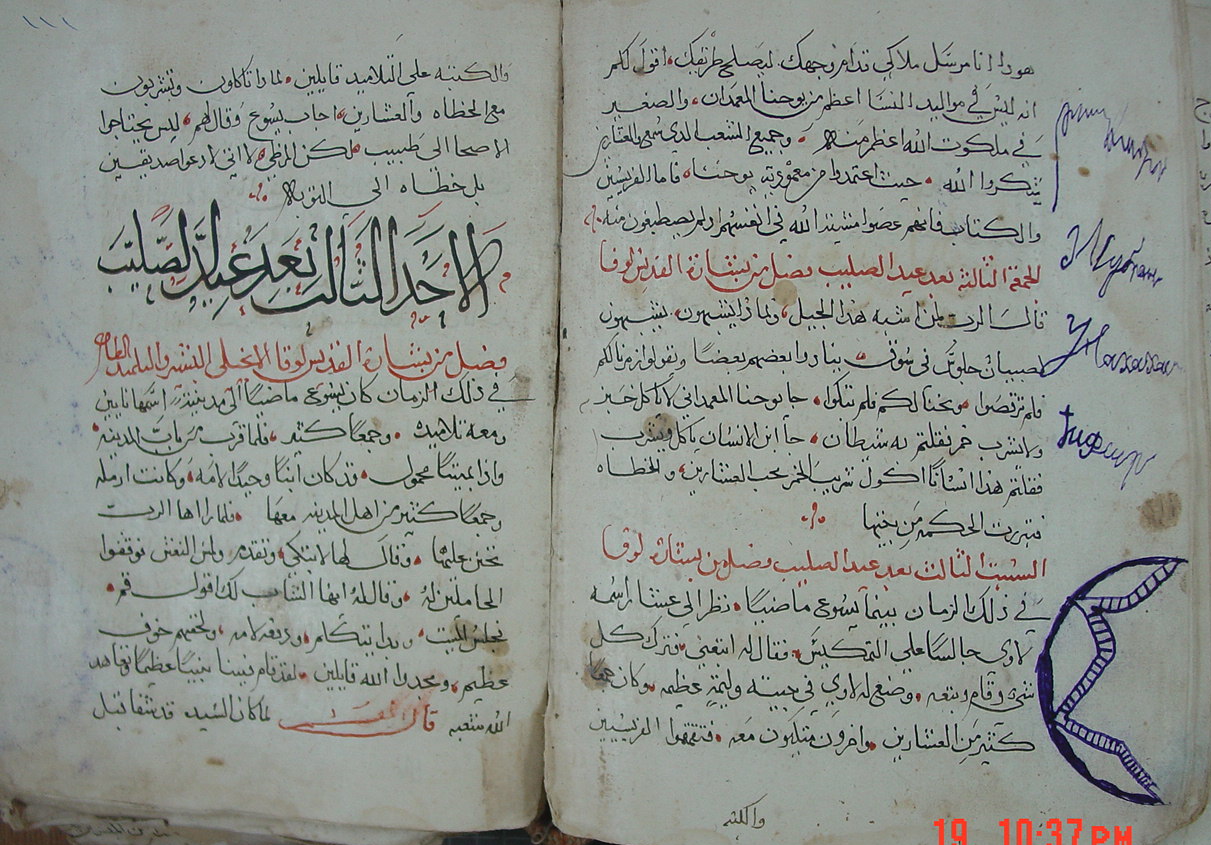 هودا انا مرسل ملاكي قدام وجهك ليصلح طريقك اقول لكم
انه ليس في مواليد النسا اعظم من يوحنا المعمدان والصغير
في ملكوت الله اعظم منه وجميع الشعب الدي سمع والعشارين
شكروا الله حيث اعتمدوا من معمودية يوحنا فاما الفريسيين
والكتاب فانهم عصوا مشية الله في انفسهم ادلم يصطبغون منه
الجمعة الثالثة بعد عيد الصليب فصل من بشارة القديس لوقا
قال الرب لمن اشبه هذا الجيل ولماذا يشبهون يشبهون
لصبيان جلوس في سوق ينادوا بعضهم بعضا ويقولوا زمرنا لكم
فلم ترقصوا ونحنا لكم فلم تبكوا جا يوحنا المعمداني لا ياكل خبز
ولا يشرب خمر فقلتم به شيطان جا ابن الانسان ياكل ويشرب
فقلتم هذا انسانا اكول شريب الخمر يحب العشارين والخطاه
فتبررت الحكمة من بنيها
السبت الثالث بعد عيد الصليب فصل من بشارة لوقا
في ذلك الزمان بينما يسوع ماضيا نظر الى عشارا اسمه
لاوي جالسا علي التمكيس فقال له اتبعني فترك كل
شي وقام وتبعه وصنع له لاوي في بيته وليمة عظيمه وكان جمعا
كثير من العشارين واخرون متكيون معه فتقمقموا الفريسيين
والكتبه
١١١
والكتبه على التلاميد قايلين لمادا تاكلون وتشربون
مع الخطاه والعشارين اجاب يسوع وقال لهم ليس يحتاجوا
الاصحا الى طبيب لكن المرضى لاني لا ادعوا صديقين
بل خطاه الى التوبة
الاحد الثالث بعد عيد الصليب
فصل من بشارة القديس لوقا الانجيلي البشير والتلميد الطاهر
في ذلك الزمان كان يسوع ماضيا الى مدينة اسمها نايين
ومعه تلاميده وجمعا كثير فلما قرب من باب المدينه
واذا بميتا محمول قد كان ابنا وحيدا لامه وكانت ارمله
وجمعا كثير من اهل المدينه معها فلما راها الرب
تحنن عليها وقال لها لا تبكي وتقدم ولمس النعش فوقفوا
الحاملين له وقال له ايها الشاب لك اقول قم
فجلس الميت وبدا يتكلم ودفعه لامه ولحقهم خوف
عظيم ومجدوا الله قايلين لقد قام فينا نبيا عظيما وتعاهد
الله شعبه قال لما كان السيد قد شفا قبل